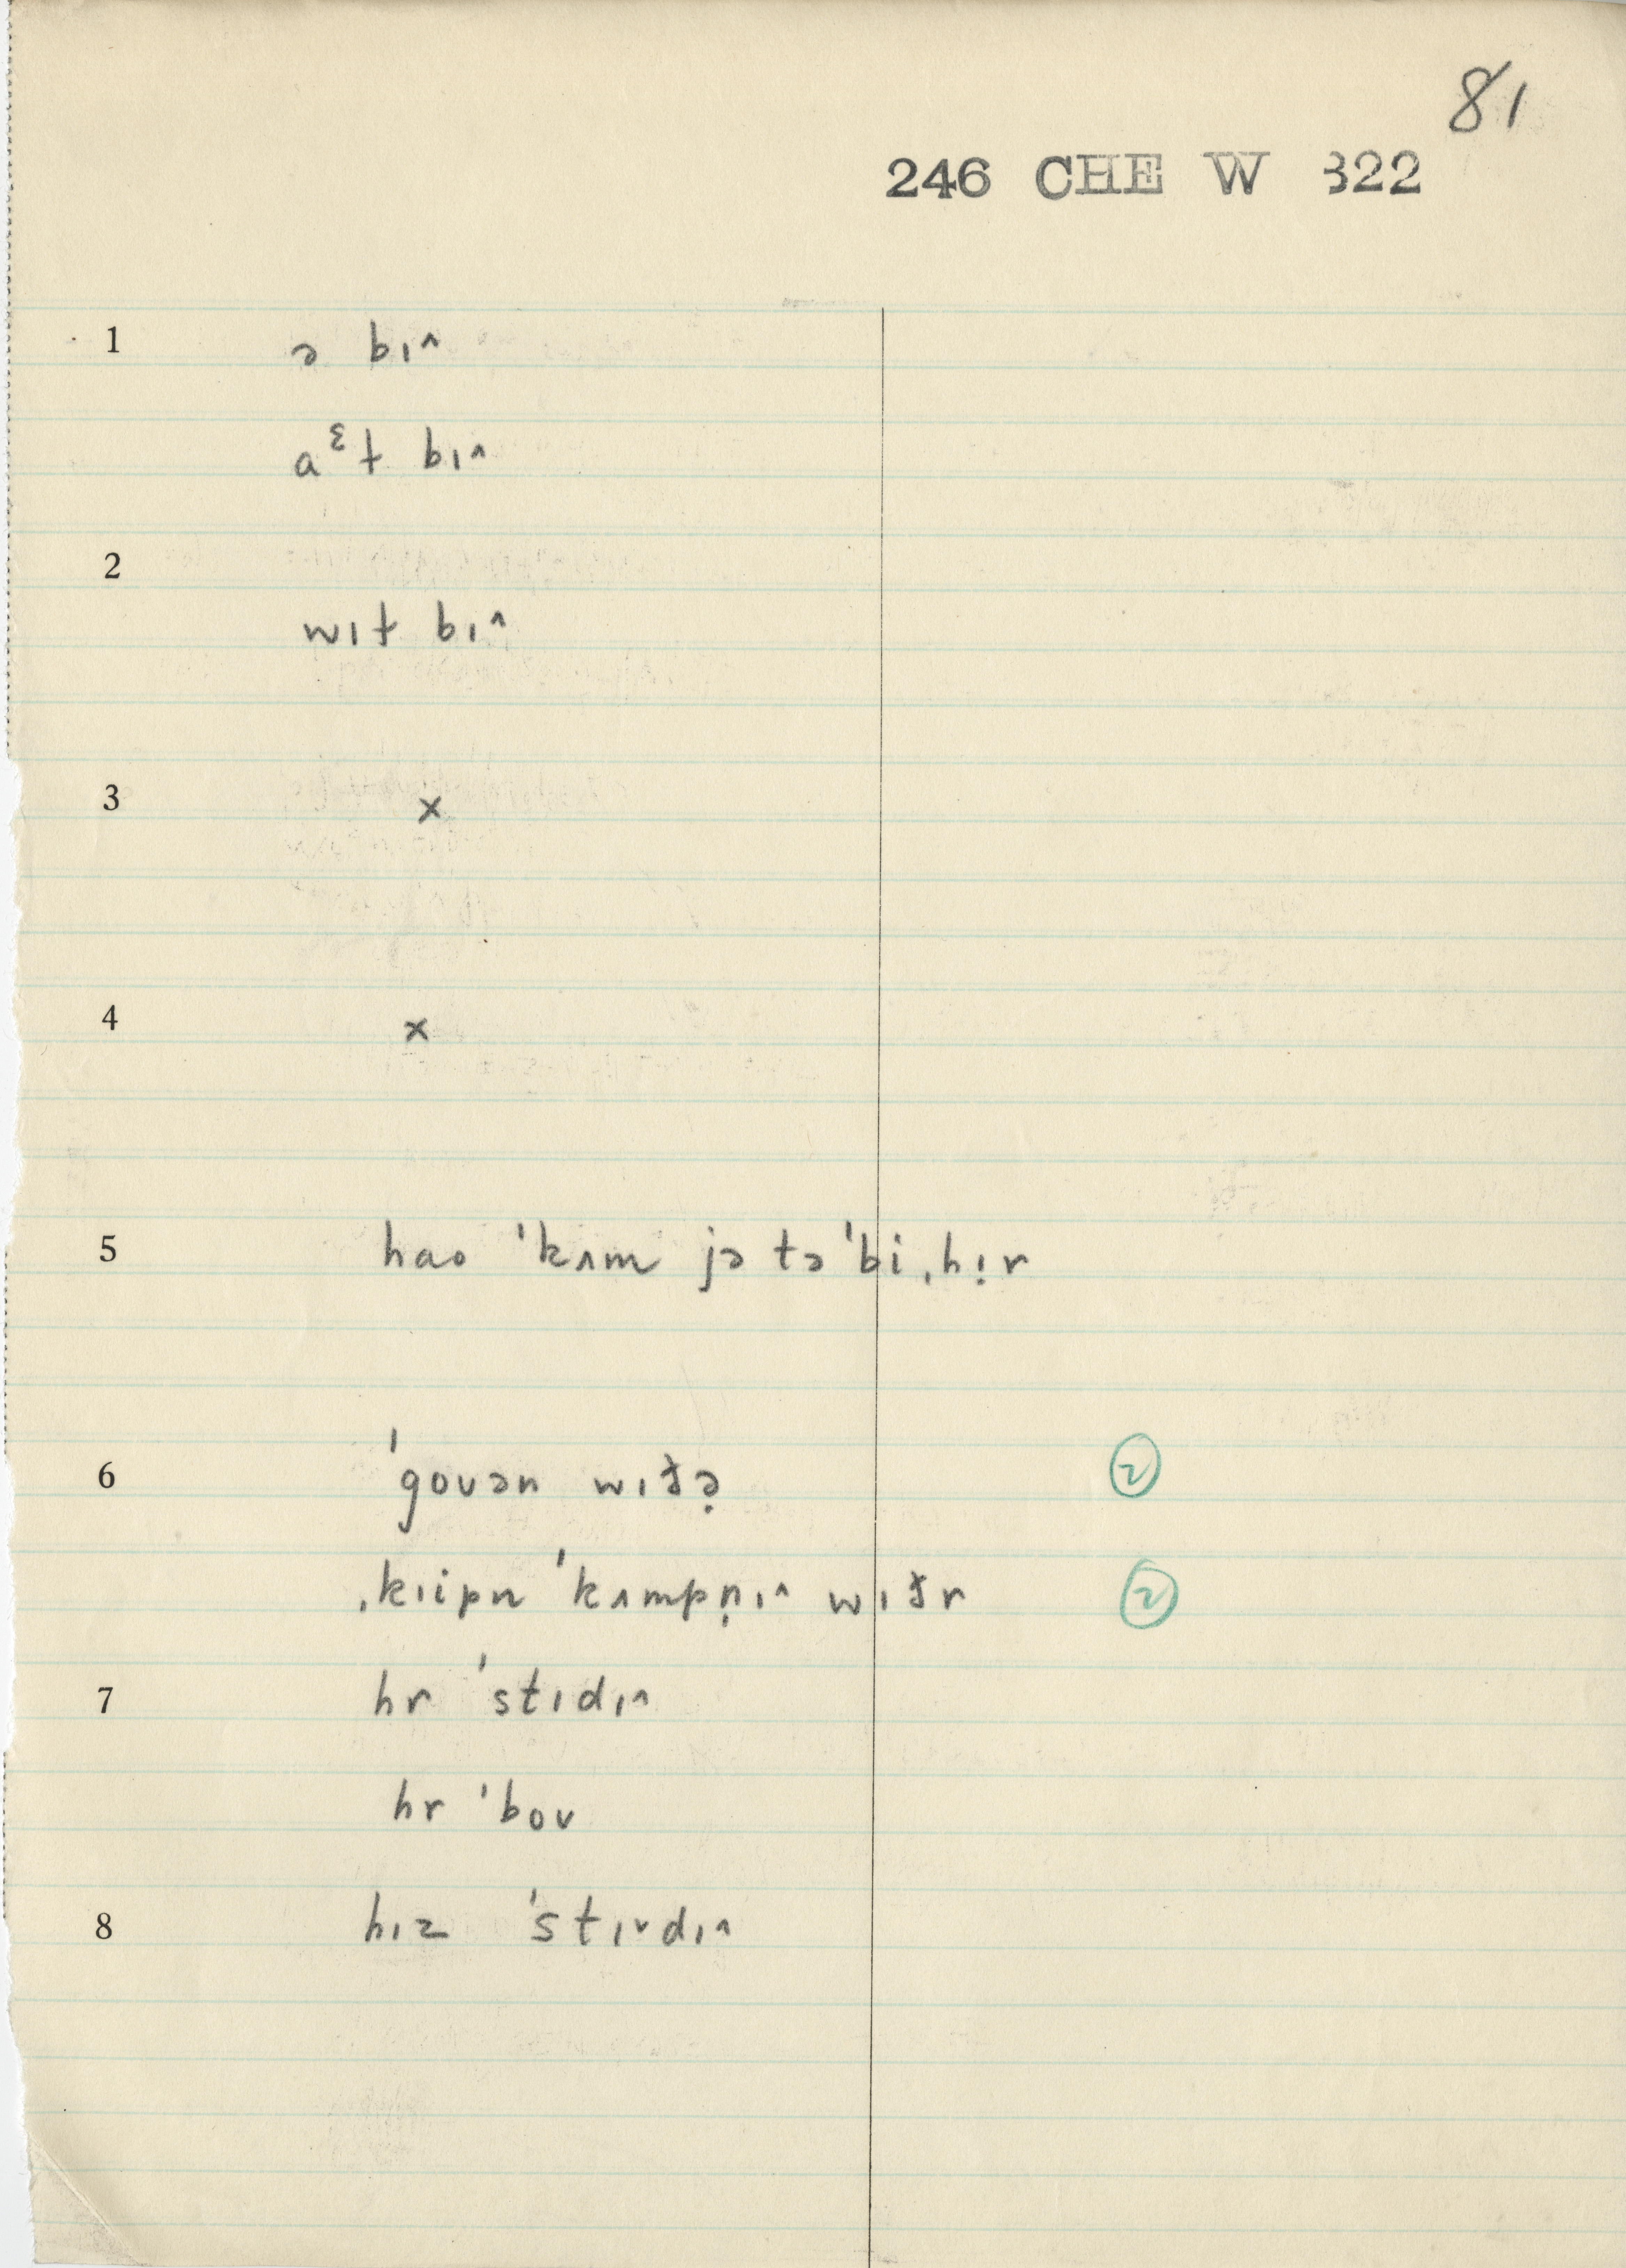 81
246 CHE W 322
1 ə bɪ^
aᵋt bɪ^
2
wɪt bɪ^
3 x
4 x
5 hao ˈkʌm jə tə ˈbi ˌhɪ̣r
6 ˈgoʊən wɪðə̣ 2
ˌkɪipn ˈkʌmpṇɪ^ wɪðr 2
7 hr ˈstɪdɪ^
hr ˈboʊ
8 hɪz ˈstɪᵛdɪ^